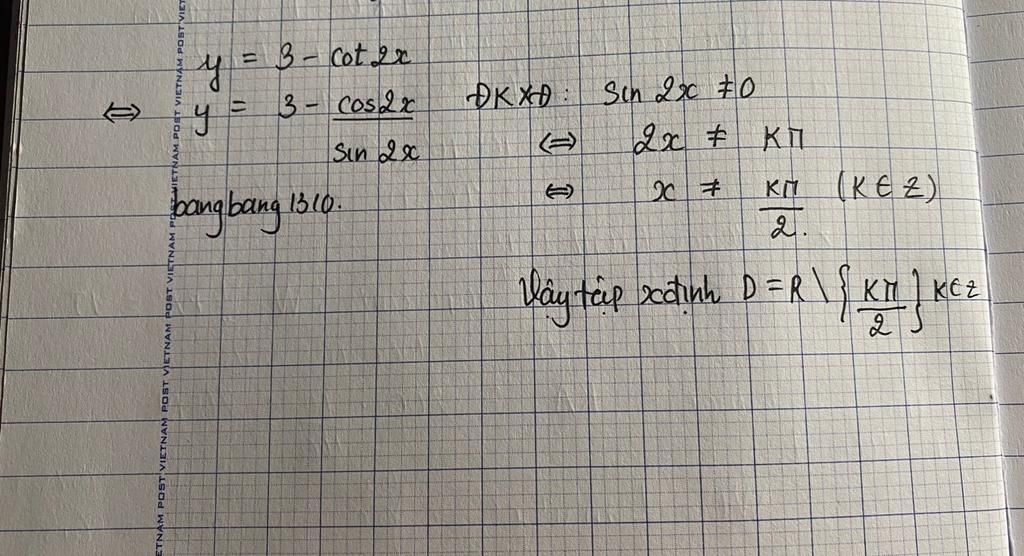 y = 3 - cot 2x
⇔ y = 3 - cos2x / sin 2x
bangbang1310.
ĐKXĐ: sin 2x ≠ 0
⇔ 2x ≠ Kπ
⇔ x ≠ Kπ/2. (K ∈ Z)
Vậy tập xđịnh D = R \ { Kπ/2 } K∈Z
VIETNAM POST VIETNAM POST VIETNAM POST VIETNAM POST VIETNAM POST VIET